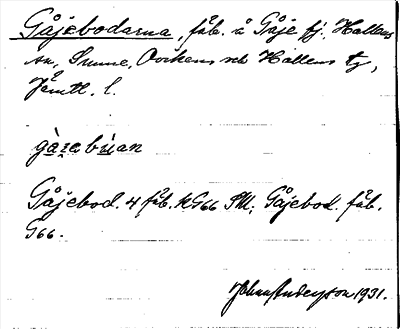 Gåjebodarna, fäb. å Gåje fj. Hallens
sn, Sunne, Ovikens och Hallens tg,
Jämtl. l.
gàʒebùan
Gåjebod. 4 fäb. KG66 SM; Gåjebod. fäb.
G66.
Johan Anderson 1931.